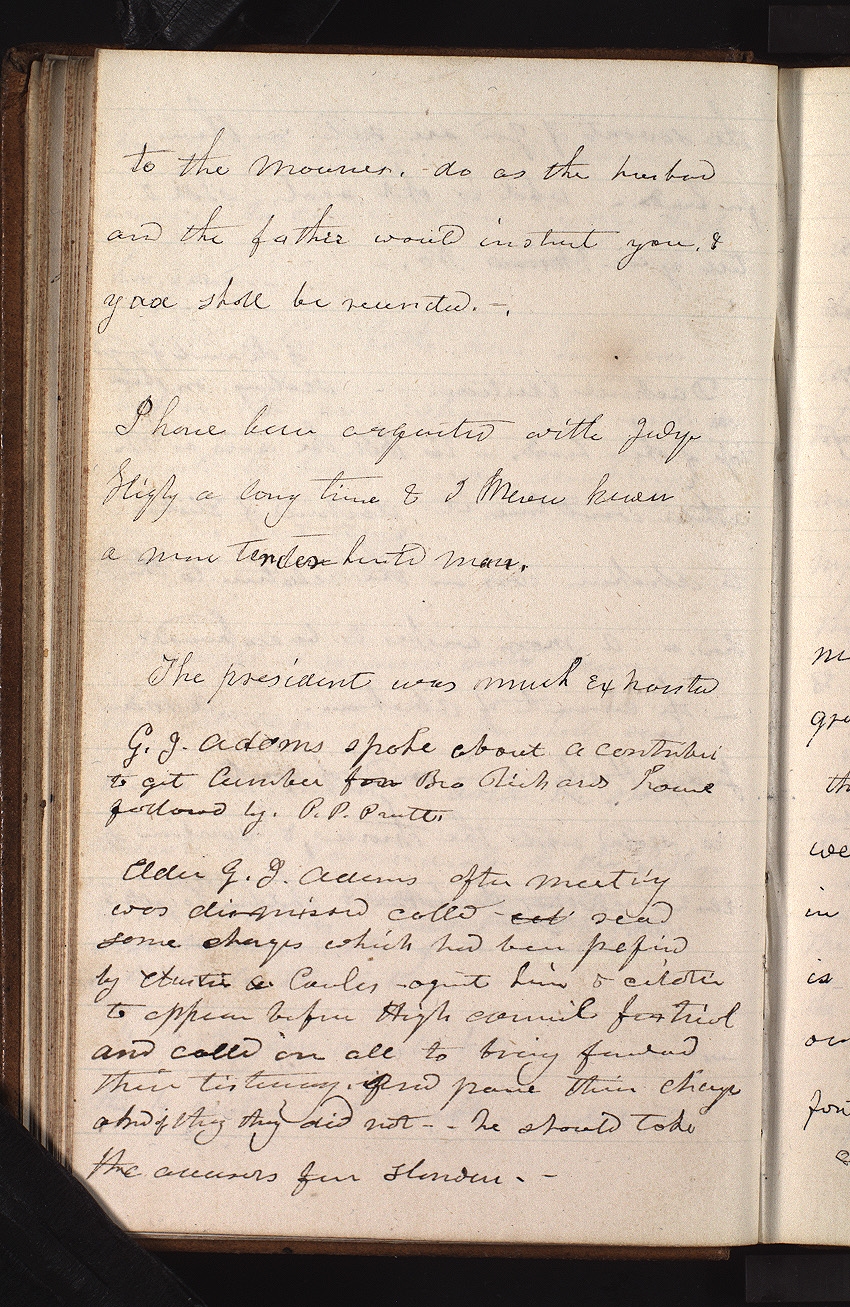 to the mourner. do as the husband
and the father would instruct you, &
you shall be reunited. -.
I have been acquainted with Judge
Higby a long time & I Never knew
a more tender hearted man.
The president was much exhausted
G. J. Adams spoke about a contributi
to get lumber for Bro Richards house
followed by. P. P. Pratt
Elder G. J. Adams after meeting
was dismissed called read
some charges which had been prefird
by Austin Cowles against him & citation
to appear before High council for trial
and called on all to bring forward
their testimony. and prove their charge
and if they did not -- he should take
the accusers for slander. -
m
gre
th
we
in
is
on
for